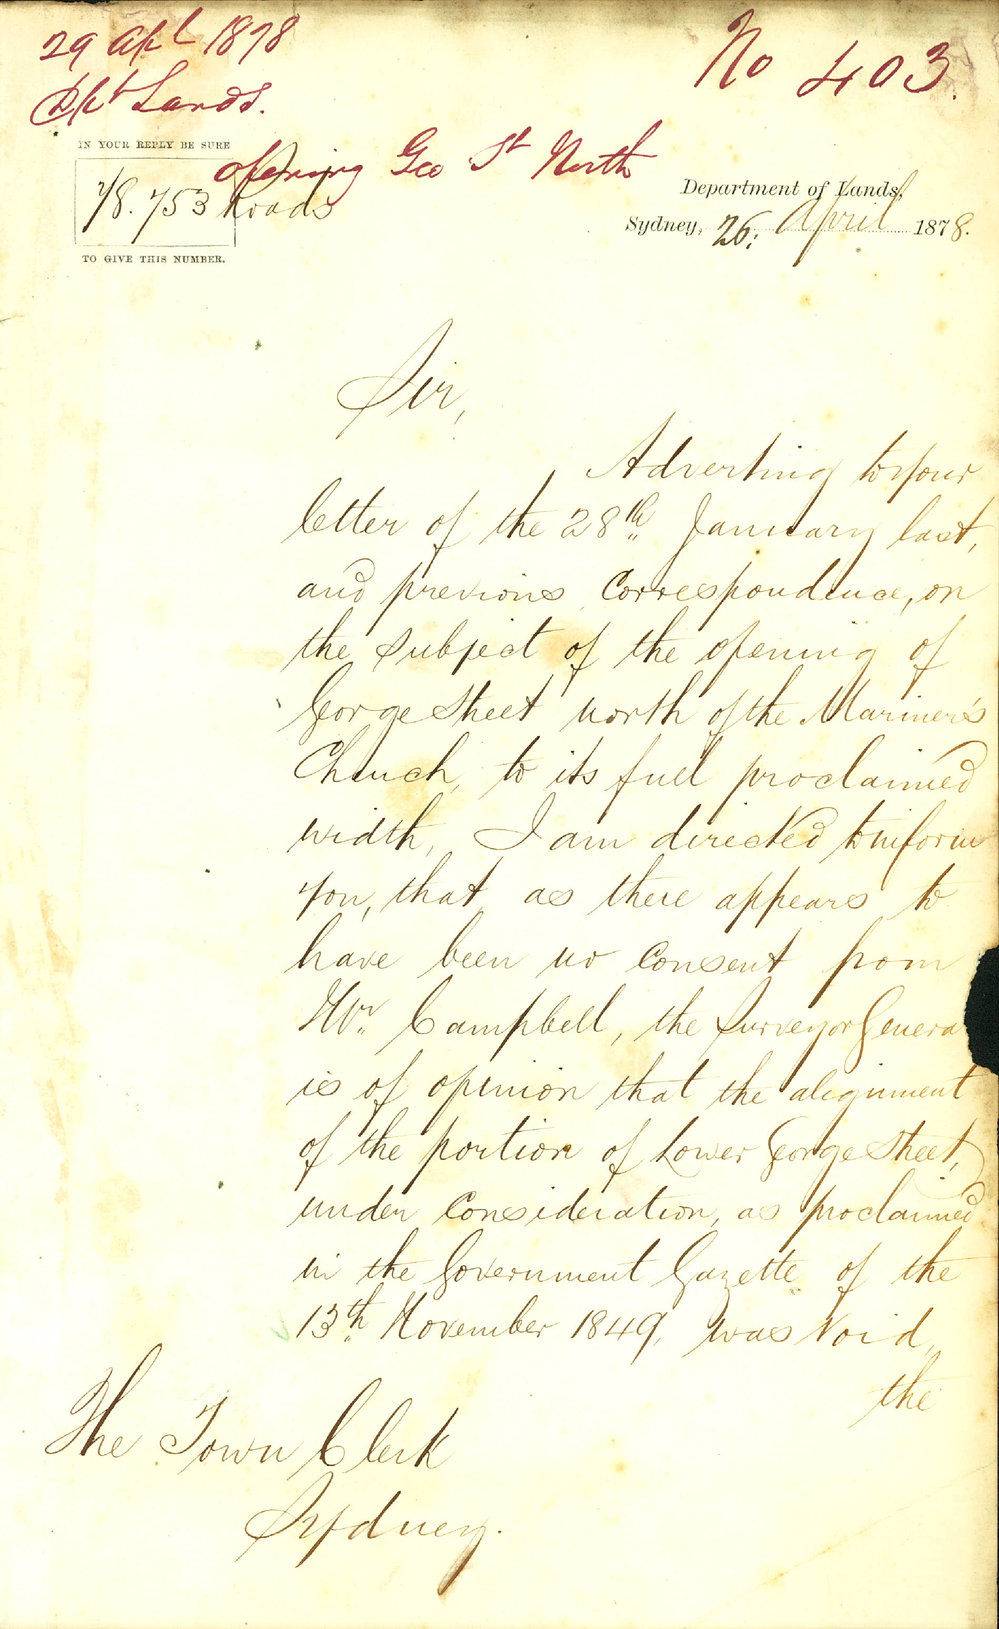 29 Apl 1878
Dpt Lands.
No 403.
opening Geo St North
IN YOUR REPLY BE SURE
78.753 Roads
TO GIVE THIS NUMBER.
Department of Lands,
Sydney, 26: April 1878.
Sir,
Adverting to your
letter of the 28th January last,
and previous Correspondence, on
the subject of the opening of
George Street north of the Mariner's
Church, to its full proclaimed
width, I am directed to inform
you, that as there appears to
have been no Consent from
Mr. Campbell, the Surveyor Genera
is of opinion that the alignment
of the portion of Lower George Street,
under Consideration, as proclaimed
in the Government Gazette of the
13th November 1849, was void,
the
The Town Clerk
Sydney.